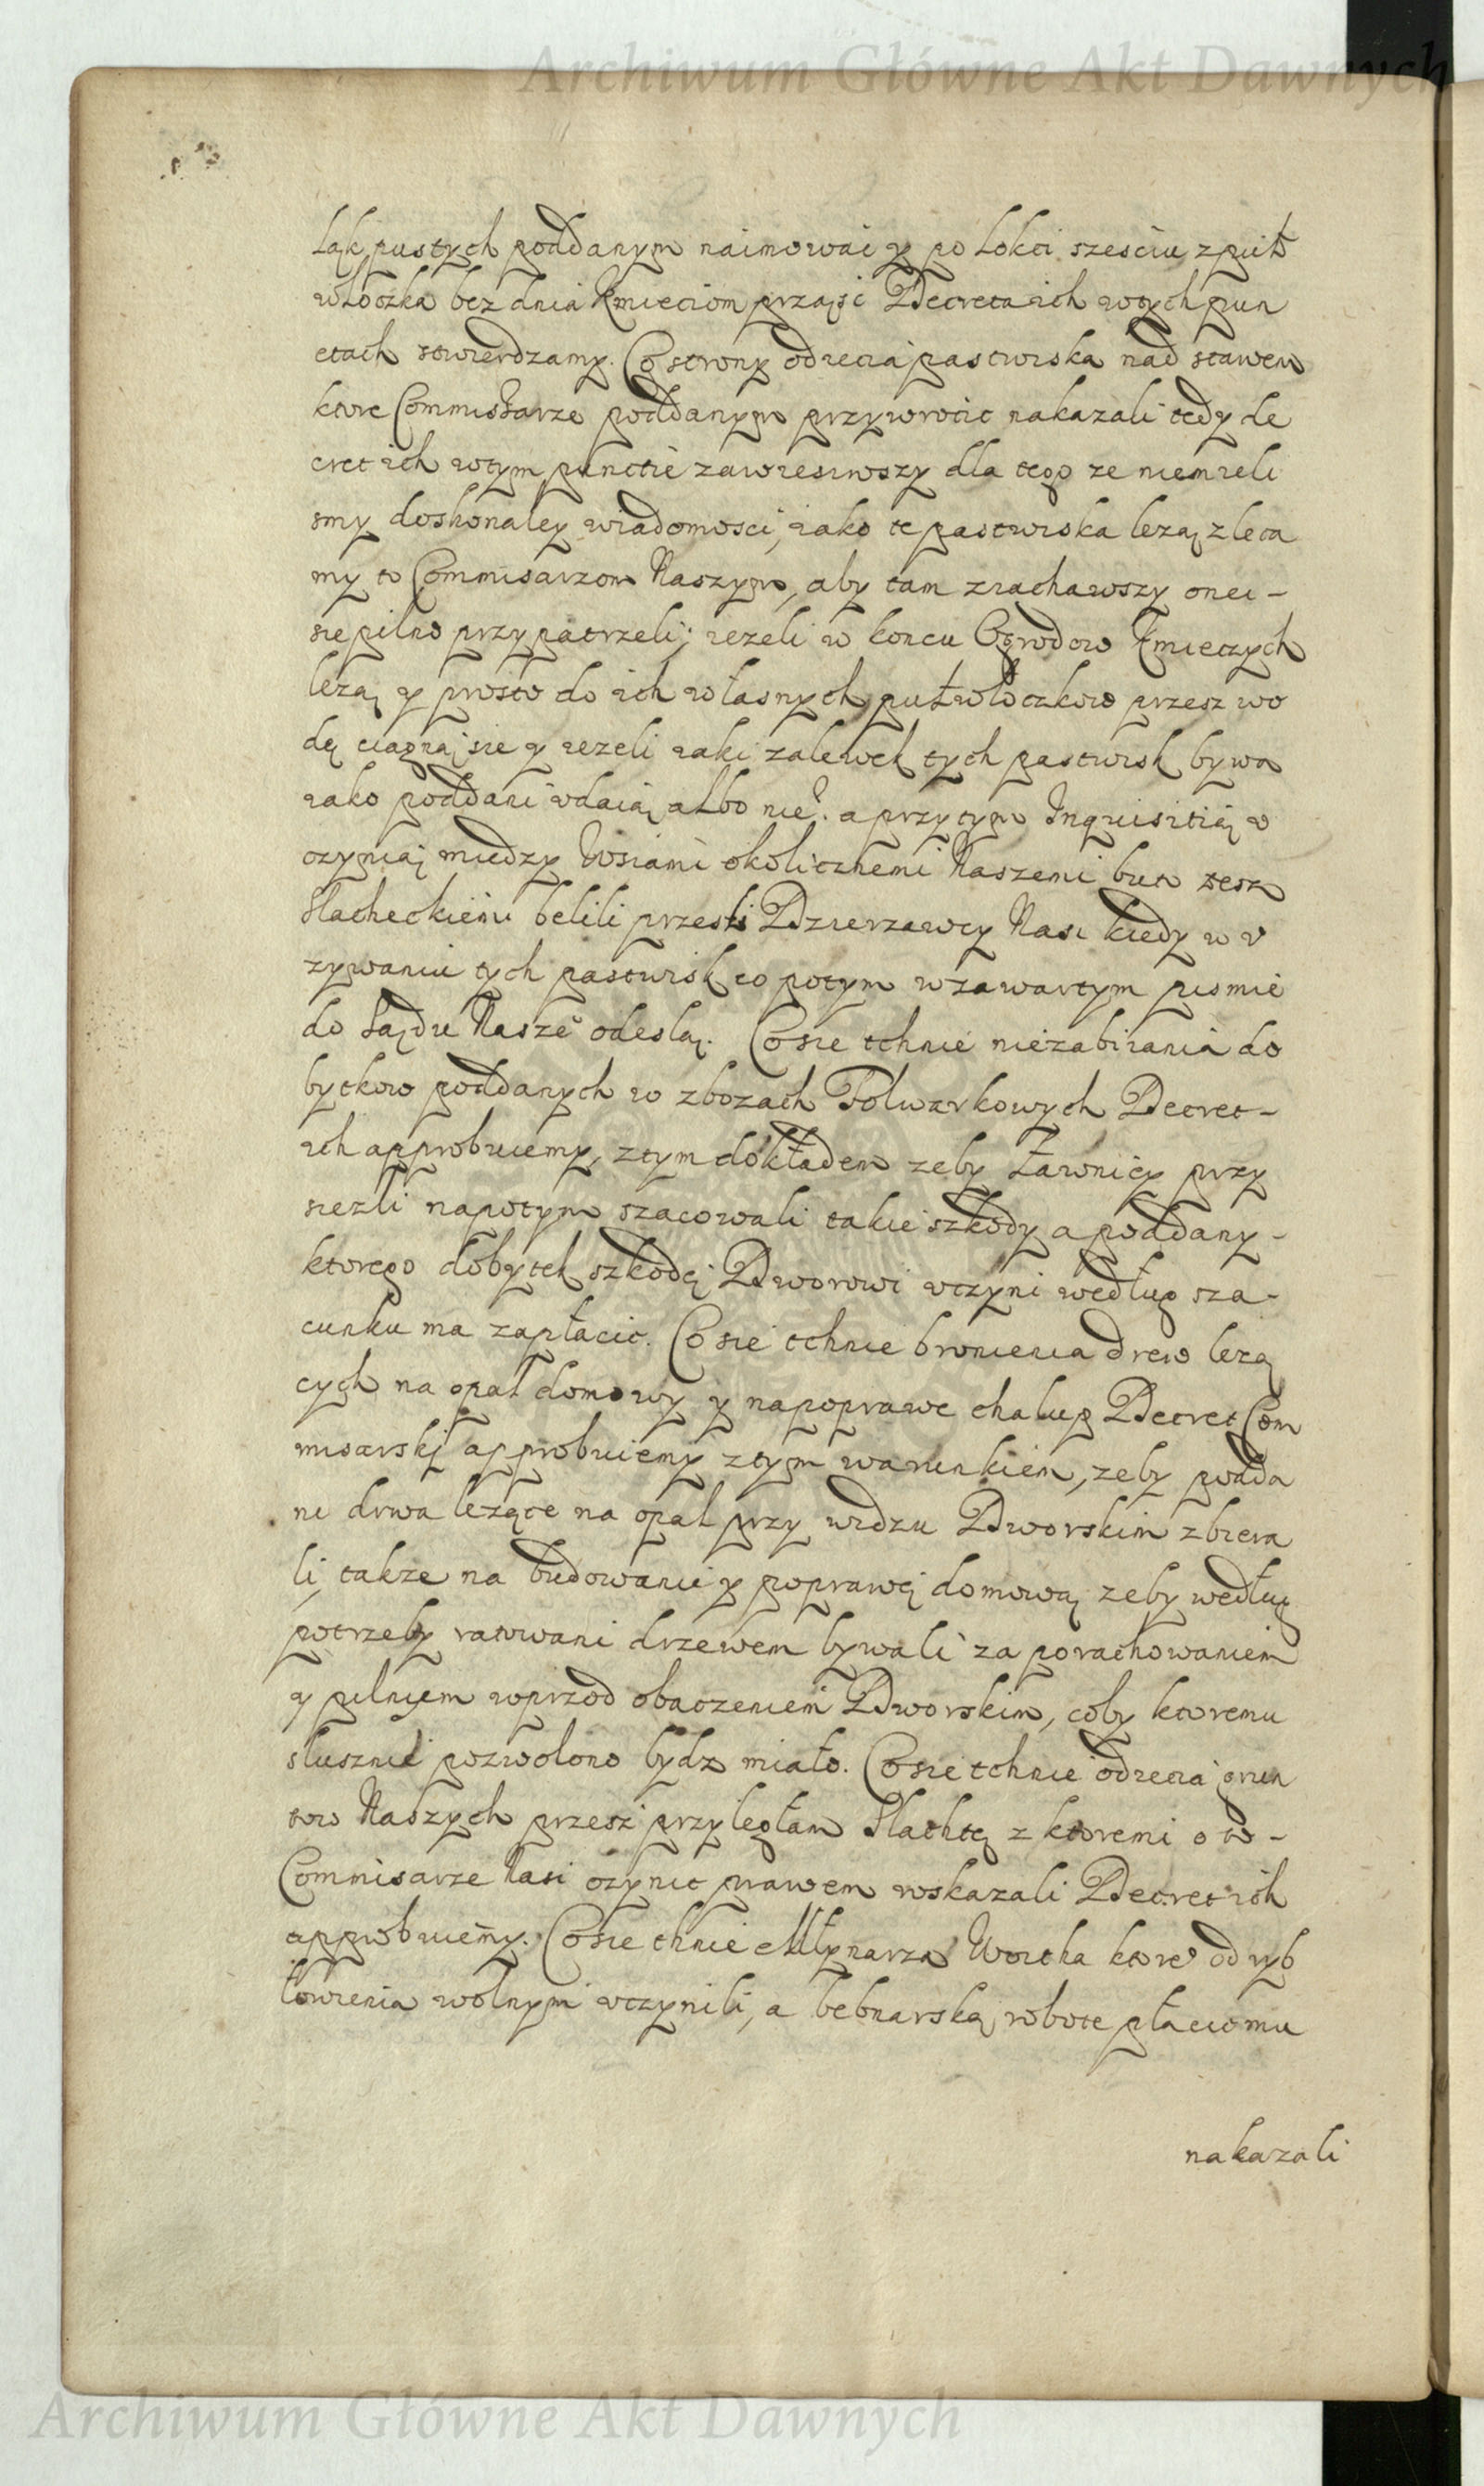 Archiwum Główne Akt Dawnych
Łąk pustych poddanym naimować y po Łokci sześciu z puł
włoczka bez dnia kmieciom prząść Decreta ich w tych pun
ctach stwierdzamy. Co strony odięcia pastwiska nad stawem
ktore Commissarze poddanym przywrocic nakazali tedy de
cret ich w tym punctie zawiesiwszy dla tego ze niemieli
smy doskonałey wiadomosci, iako te pastwiska lezą zleca
my to Commisarzom Naszym, aby tam ziachawszy onei-
sie pilno przypatrzeli; iezeli w koncu Ogrodow kmieczych
lezą y prosto do ich własnych pułwłoczkow przesz wo
dę ciągną sie y iezeli iaki zalewek tych pastwisk bywa
iako poddani vdaią albo nie. a przytym Inquisitią v
czynią między Wsiami okolicznemi Naszemi bus tesz
Slacheckiemi belili przeszli Dzierzawcy Nasi kiedy w v
zywaniu tych pastwisk co potym w zawartym pismie
do Sądu Nasze° odeslą. Co sie tchnie niezabirania do
bytkow poddanych w zbozach Folwarkowych Decret-
ich approbuiemy, z tym dokładem zeby Ławnicy przy
siezli napotym szacowali takie szkody a poddany-
ktorego dobytek szkodę Dworowi vczyni według sza-
cunku ma zapłacic. Co sie tchnie bronienia drew lezą
cych na opał domowy y na poprawe chalup Decret Com
misarski approbuiemy z tym warunkiem, zeby podda
ni drwa lezące na opał przy widzu Dworskim zbiera
li, takze na budowanie y poprawę domową zeby według
potrzeby ratowani drzewem bywali za porachowaniem
y pilnym wprzod obaczeniem Dworskim, coby ktoremu
slusznie pozwolono bydz miało. Co sie tchnie odięcia grun
tow Naszych przesz przyległam Slachtę z ktoremi o to-
Commisarze Nasi czynic prawem wskazali Decret ich
approbuiemy. Co sie tchnie Młynarza Woitka ktore° od ryb
łowienia wolnym vczynili, a bebnarską robote płacic mu
nakazali
Archiwum Główne Akt Dawnych